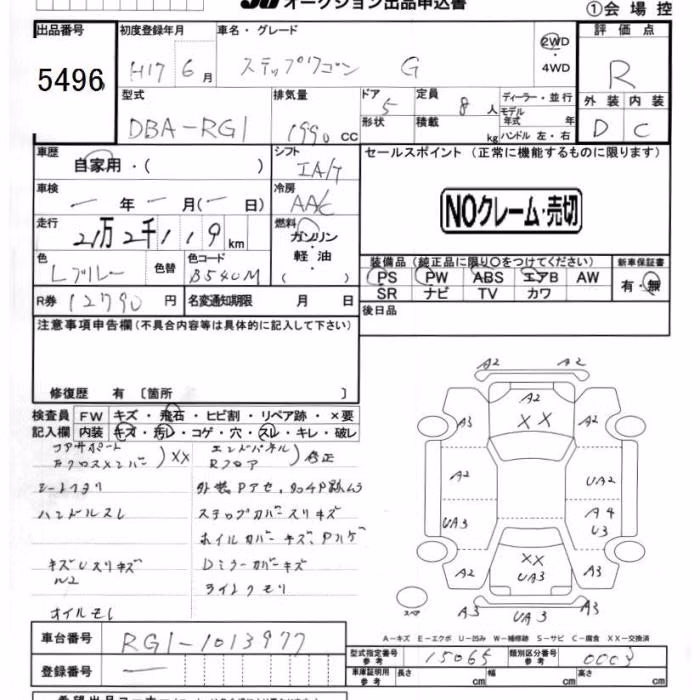 オークション出品申込書
①会場控
出品番号
5496
初度登録年月
H17 6月
車名・グレード
ステップワゴン G
2WD
・
4WD
評価点
R
外装 内装
D C
型式
DBA-RG1
排気量
1990 CC
ドア 5
形状
定員 8人
積載 kg
ディーラー・並行
モデル年式 年
ハンドル 左・右
車歴
自家用・( )
シフト
IA/T
セールスポイント (正常に機能するものに限ります)
NOクレーム・売切
車検
― 年 ― 月(― 日)
冷房
AA/C
走行
21万2千119km
燃料
ガソリン
・
軽油
( )
色
Lブルー
色替
色コード
B540M
装備品 (純正品に限り○をつけてください)
PS PW ABS エアB AW
SR ナビ TV カワ
新車保証書
有・無
R券 12790円
名変通知期限 月 日
後日品
注意事項申告欄(不具合内容等は具体的に記入して下さい)
修復歴 有〔箇所 〕
検査員
記入欄
FW キズ・飛石・ヒビ割・リペア跡・×要
内装 キズ・汚レ・コゲ・穴・スレ・キレ・破レ
コアサポート
Fクロスメンバー
XX
エンドパネル
Rフロア
修正
シートヘタリ
ハンドルスレ
ステップカバースリキズ
ホイルカバーキズ、Pハゲ
キズUスリキズ
Dミラーカバーキズ
ライトクモリ
オイルモレ
A2 A2
A2
XX
A3 A2
A2 UA2
UA3 A4
U3
XX
UA3
A2 A3
A3 UA3 A3
スペア
A-キズ E-エクボ U-凹み W-補修跡 S-サビ C-腐食 XX-交換済
車台番号
RG1-1013977
登録番号
―
型式指定番号
参考
15065
類別区分番号
参考
0003
車庫証明用
参考
長さ cm 幅 cm 高さ cm